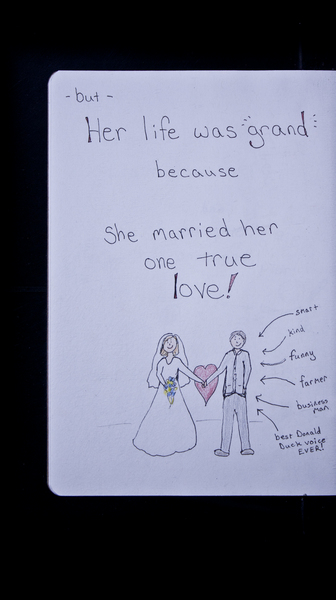 - but -
Her life was grand
because
She married her
one true
love!
smart
kind
funny
farmer
business
man
best Donald
Duck voice
EVER!